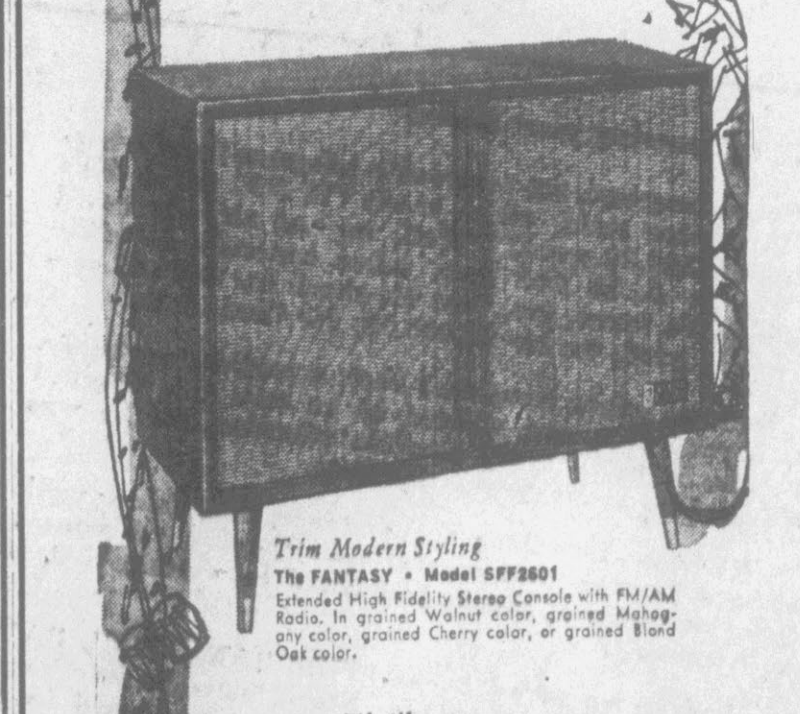 Trim Modern Styling
The FANTASY • Model SFF2601
Extended High Fidelity Stereo Console with FM/AM
Radio. In grained Walnut color, grained Mahog-
any color, grained Cherry color, or grained Blond
Oak color.